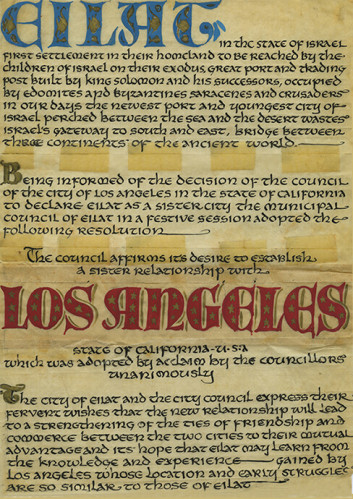 EILAT
in the state of israel
first settlement in their homeland to be reached by the
children of israel on their exodus, great port and trading
post built by king solomon and his successors, occupied
by edomites and byzantines saracenes and crusaders
in our days the newest port and youngest city of
israel perched between the sea and the desert wastes
israel's gateway to south and east, bridge between
three continents of the ancient world.
Being informed of the decision of the council
of the city of los angeles in the state of california
to declare eilat as a sister city the municipal
council of eilat in a festive session adopted the
following resolution
The council affirms its desire to establish
a sister relationship with
LOS ANGELES
state of california·u·s·a
which was adopted by acclaim by the councillors
unanimously
The city of eilat and the city council express their
fervent wishes that the new relationship will lead
to a strengthening of the ties of friendship and
commerce between the two cities to their mutual
advantage and its hope that eilat may learn from
the knowledge and experience gained by
los angeles whose location and early struggles
are so similar to those of eilat